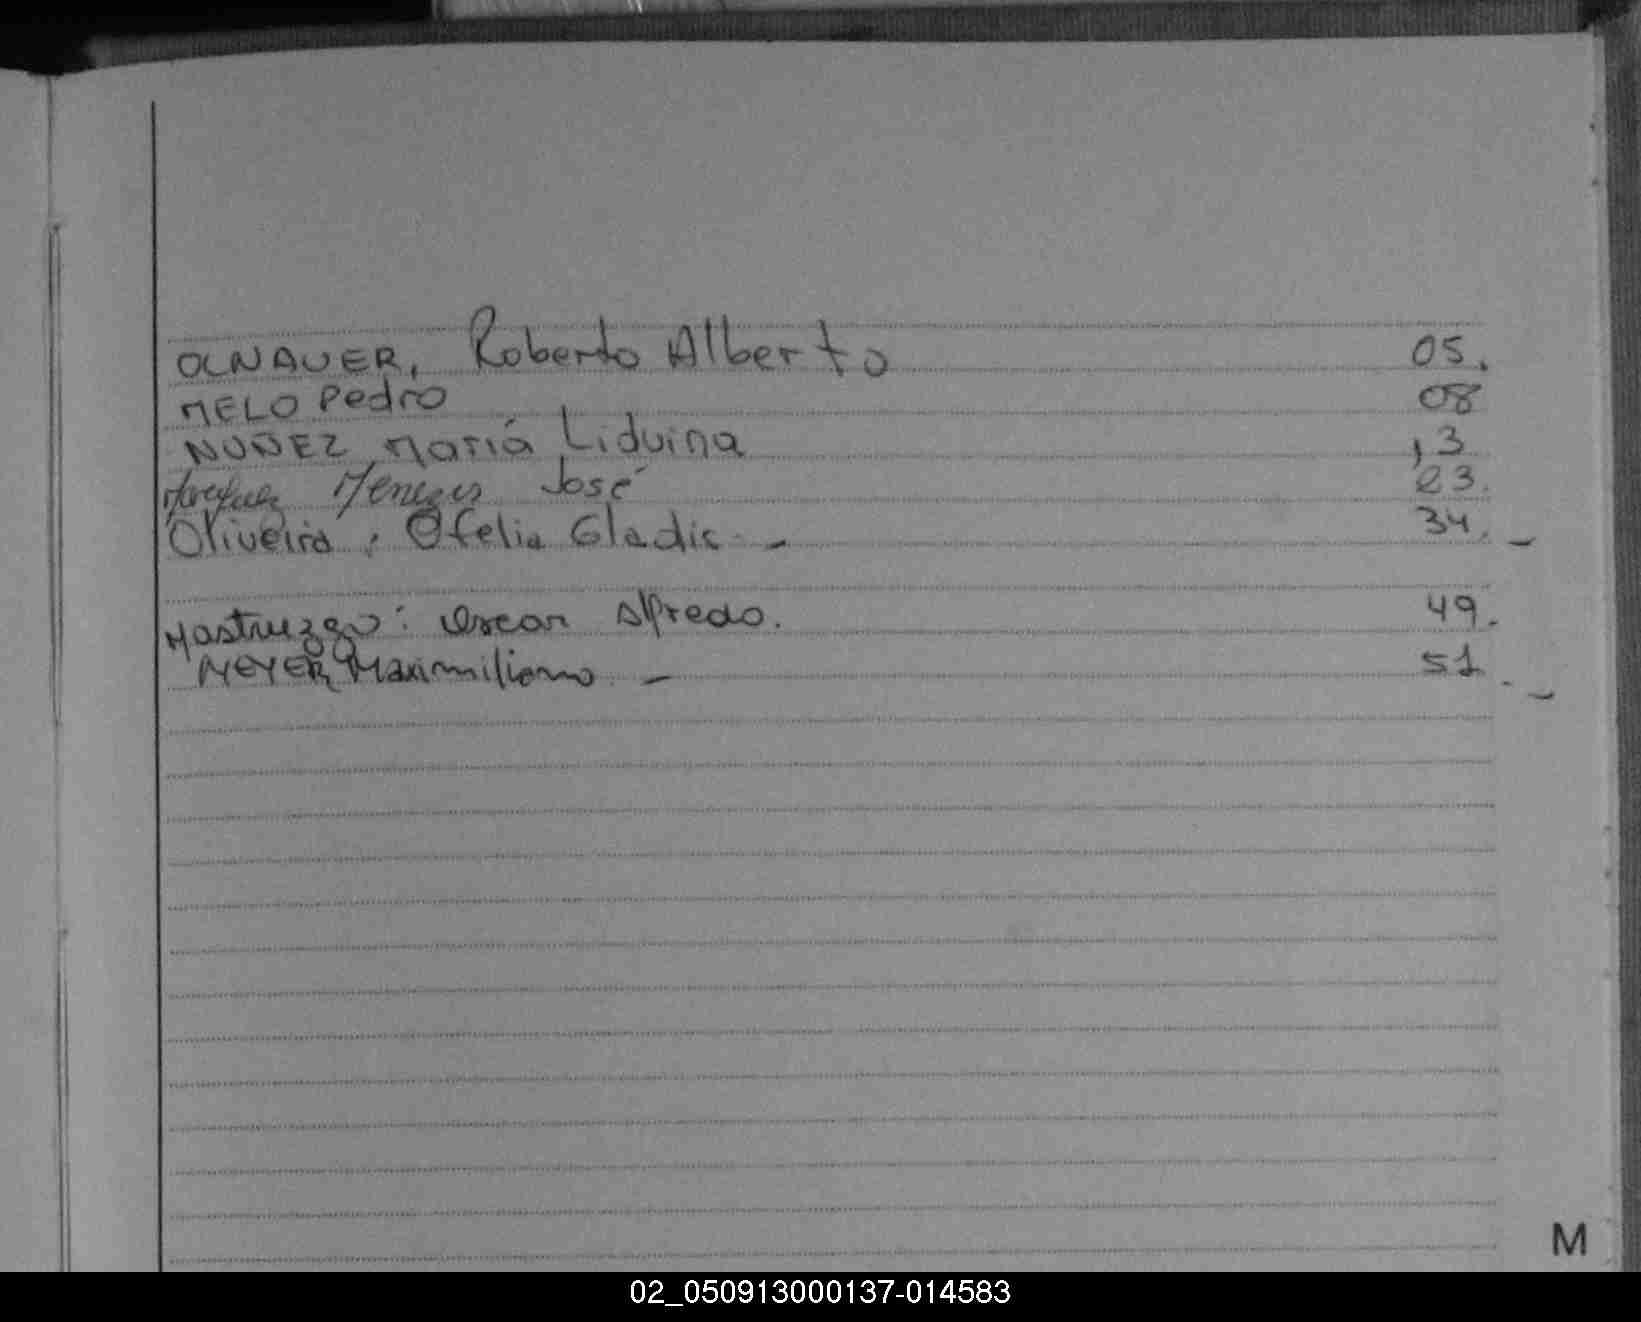 OLNAUER, Roberto Alberto 05.
MELO Pedro 08
NUÑEZ Maria Liduina 13
Menezes José 23.
Oliveira : Ofelia Gladis - 34. -
: Oscar Alfredo. 49.
MEYER Maximiliano - 51. -
M
02_050913000137-014583